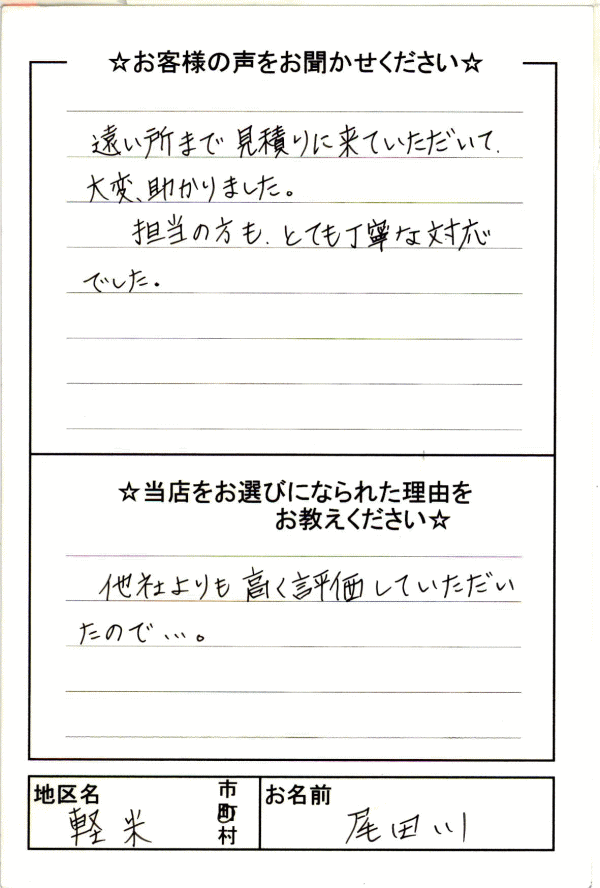 ☆お客様の声をお聞かせください☆
遠い所まで見積りに来ていただいて、
大変、助かりました。
担当の方も、とても丁寧な対応
でした。
☆当店をお選びになられた理由を
お教えください☆
他社よりも高く評価していただい
たので…。
地区名
軽米
市
町
村
お名前
尾田川